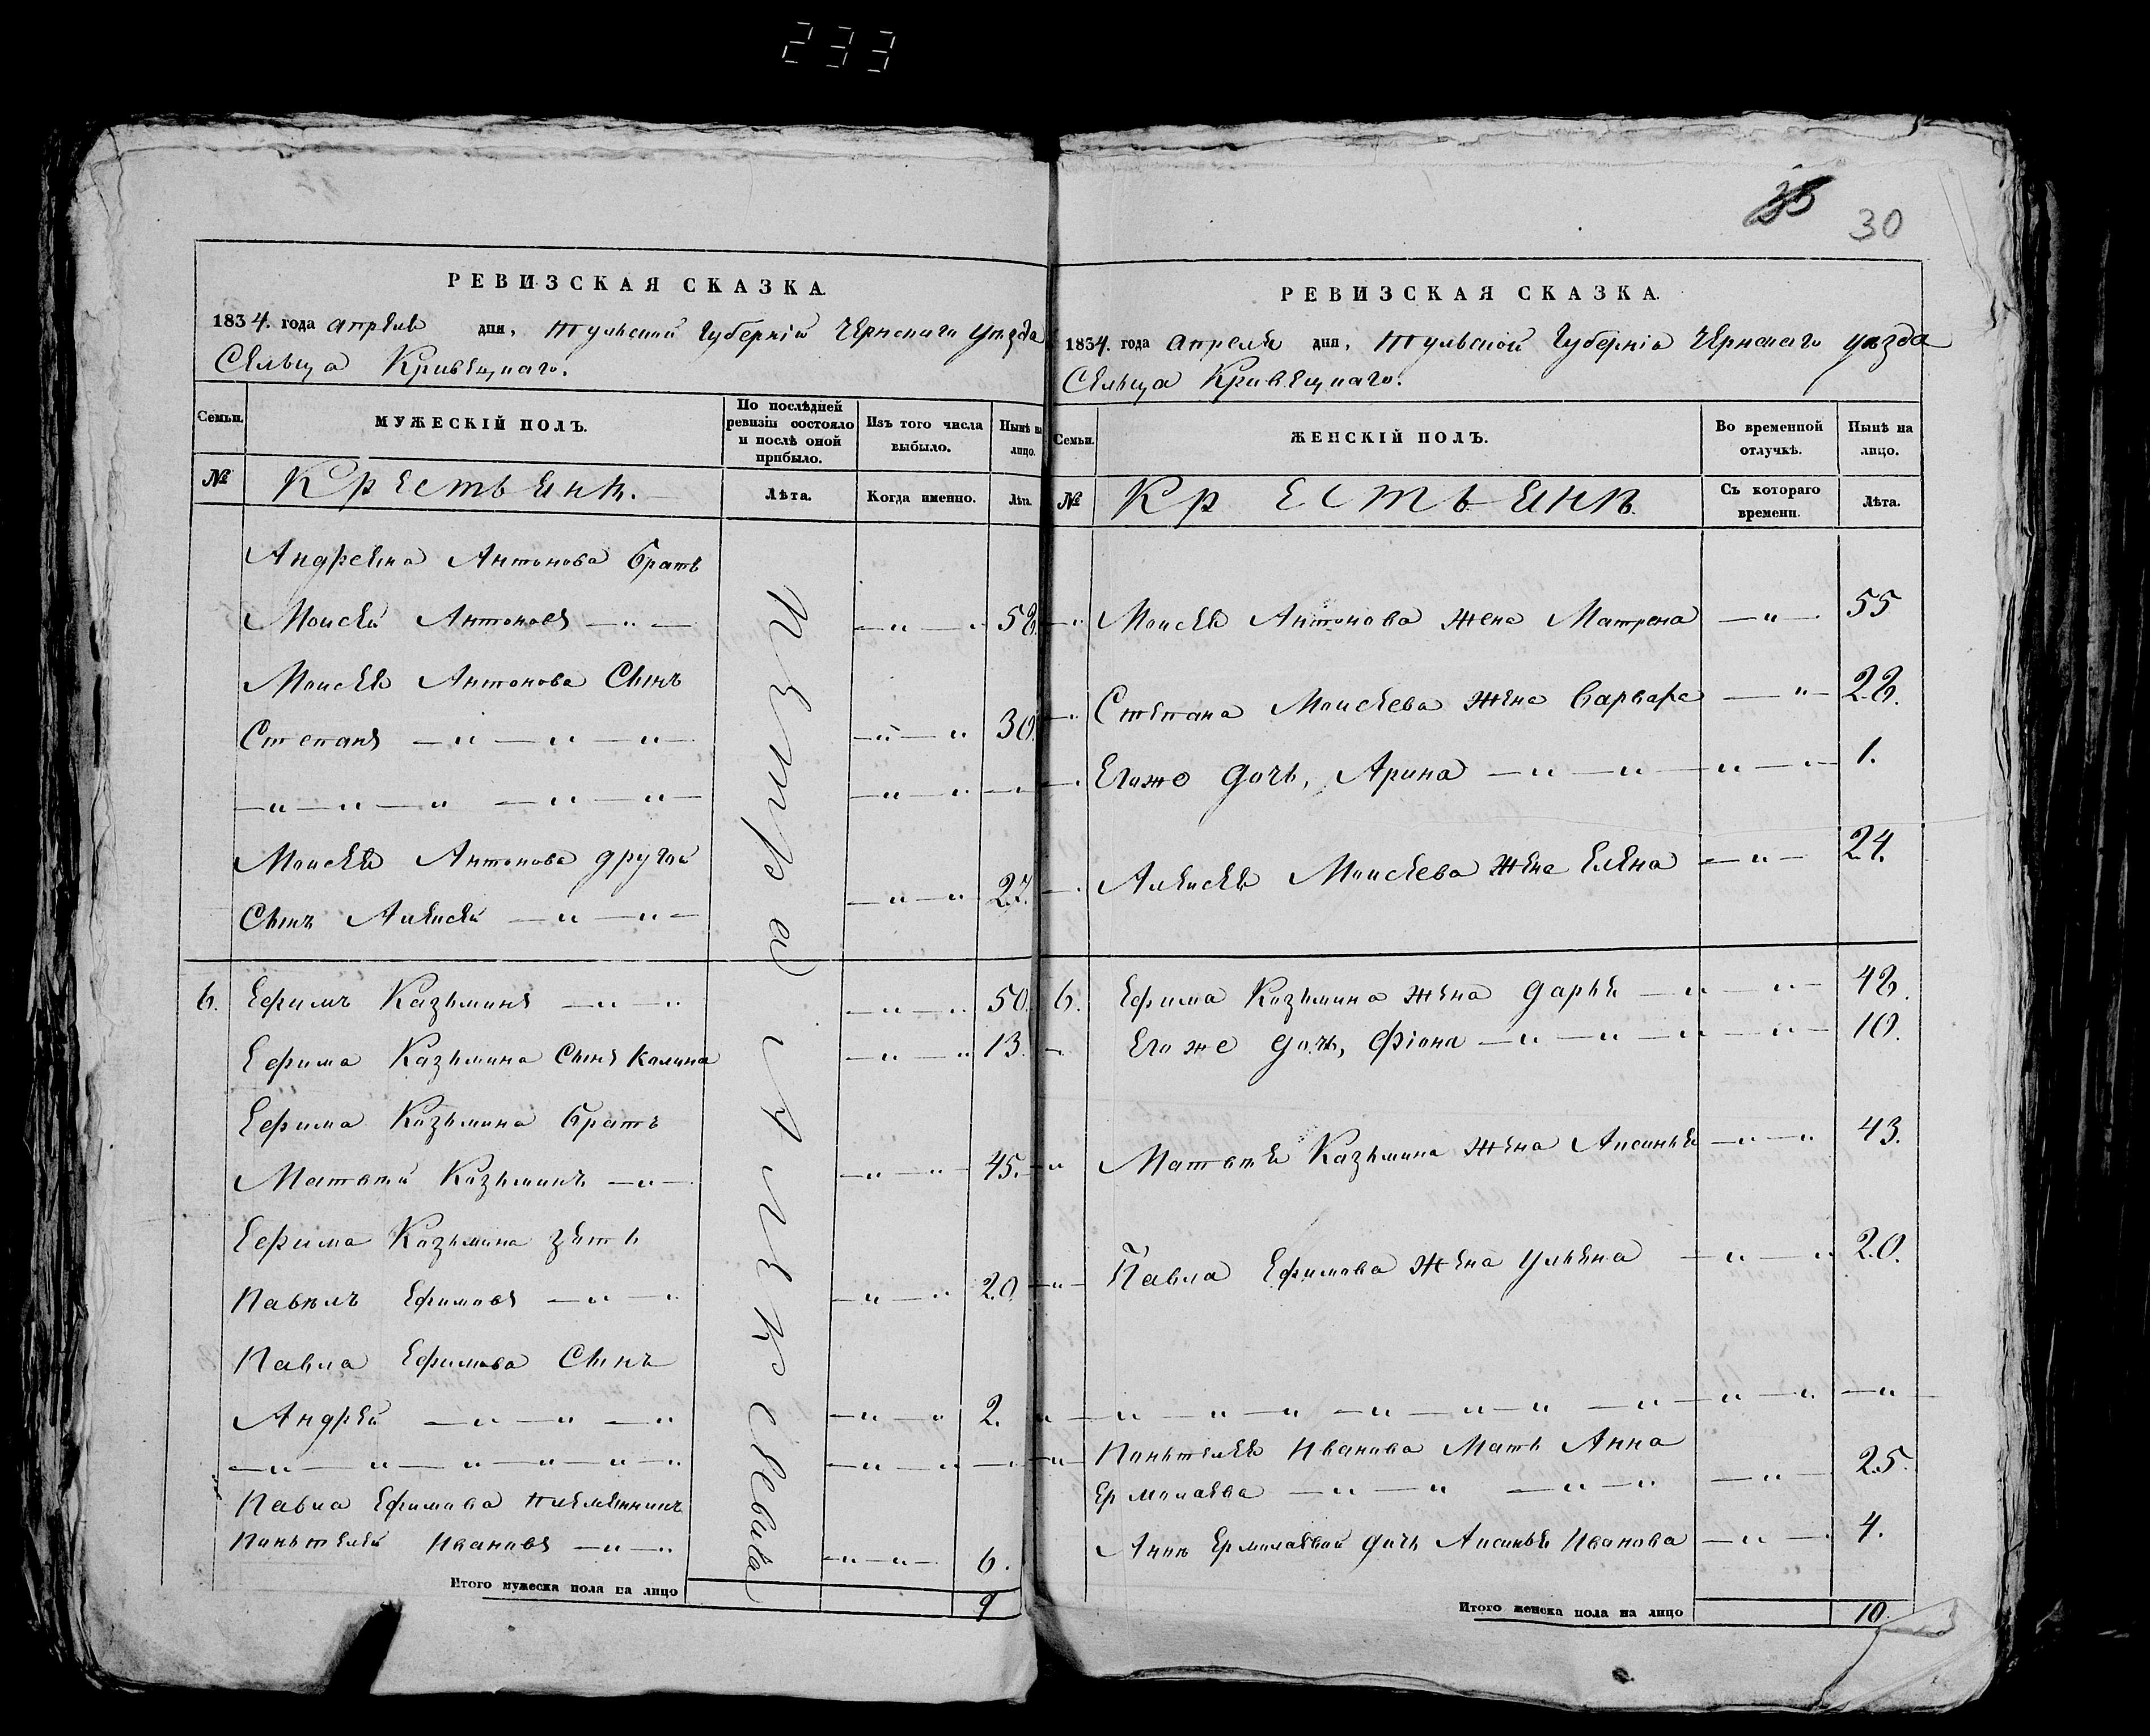 233
30
РЕВИЗСКАЯ СКАЗКА.
1834. года апреля дня, Тульской Губерніи Чернскаго уѣзда
Сельца Кривецкаго.
Семьи.
МУЖЕСКІЙ ПОЛЪ.
По послѣдней ревизіи состояло и послѣ оной прибыло.
Изъ того числа выбыло.
Нынѣ на лицо.
№
Крестьянъ.
Лѣта.
Когда именно.
Лѣта.
Андреяна Антонова братъ
Моисей Антоновъ — " — — " — " 58.
Моисея Антонова Сынъ
Степанъ — " — " — " — — " — " 30.
— " — " — " — " — " — — " — " — " —
Моисея Антонова другой
Сынъ Алексей — " — " — — " — " 27.
6. Ефимъ Казьминъ — " — " — " — " 50.
Ефима Казьмина Сынъ Калина — " — " 13.
Ефима Казьмина братъ
Матвей Казьминъ — " — — " — " 45.
Ефима Казьмина зять
Павелъ Ефимовъ — " — " — " — " 20.
Павла Ефимова Сынъ
Андрей — " — " — " — " — " 2.
— " — " — " — " — " — " — " — "
Павла Ефимова племянникъ
Паньтелей Ивановъ — " — " — " — " — 6.
Итого мужеска пола на лицо 9
РЕВИЗСКАЯ СКАЗКА.
1834. года апреля дня, Тульской Губерніи Чернскаго уѣзда
Сельца Кривецкаго.
Семьи.
ЖЕНСКІЙ ПОЛЪ.
Во временной отлучкѣ.
Нынѣ на лицо.
№
Крестьянъ.
Съ котораго времени.
Лѣта.
Моисея Антонова жена Матрена — " — 55
Степана Моисеева жена Варвара — " — 28.
Егоже дочь, Арина — " — " — " — " — 1.
Алексея Моисеева жена Елена — " — 24.
6. Ефима Козьмина жена Дарья — " — " — 48.
Егоже дочь, Фіона — " — " — " — " — 10.
Матвея Казьмина жена Аксинья — " — " 43.
Павла Ефимова жена Ульяна — " — " 20.
" — " — " — " — " — " — " — " — " — " — "
Паньтелея Иванова Мать Анна
Ермолаева — " — " — " — " — " — 25.
Анны Ермолаевой дочь Аксинья Иванова — " — 4.
Итого женска пола на лицо 10.